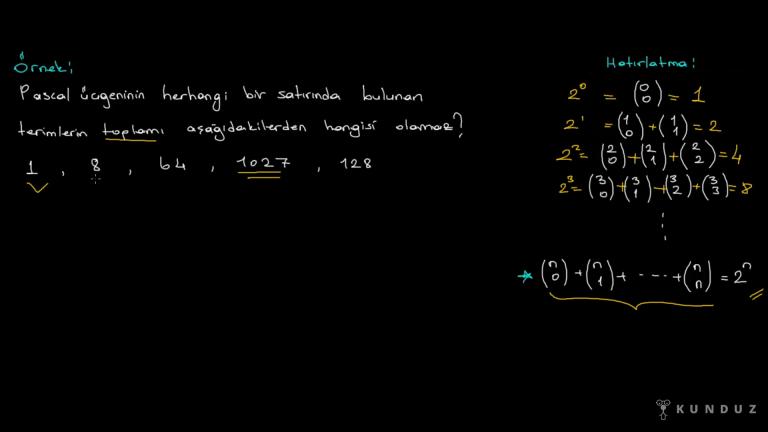 Örnek:
Pascal üçgeninin herhangi bir satırında bulunan
terimlerin toplamı aşağıdakilerden hangisi olamaz?
1 , 8 , 64 , 1027 , 128
Hatırlatma:
2⁰ = (0 0) = 1
2¹ = (1 0) + (1 1) = 2
2² = (2 0) + (2 1) + (2 2) = 4
2³ = (3 0) + (3 1) + (3 2) + (3 3) = 8
(n 0) + (n 1) + ---- + (n n) = 2ⁿ
KUNDUZ